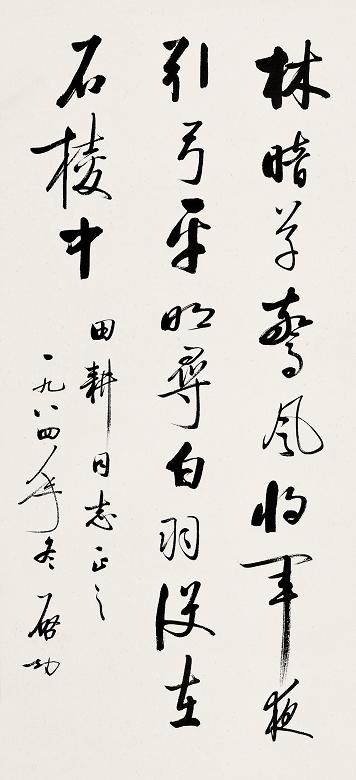 林暗草驚風将軍夜
引弓平明尋白羽没在
石棱中
田耕同志正之
一九八四年冬 啓功